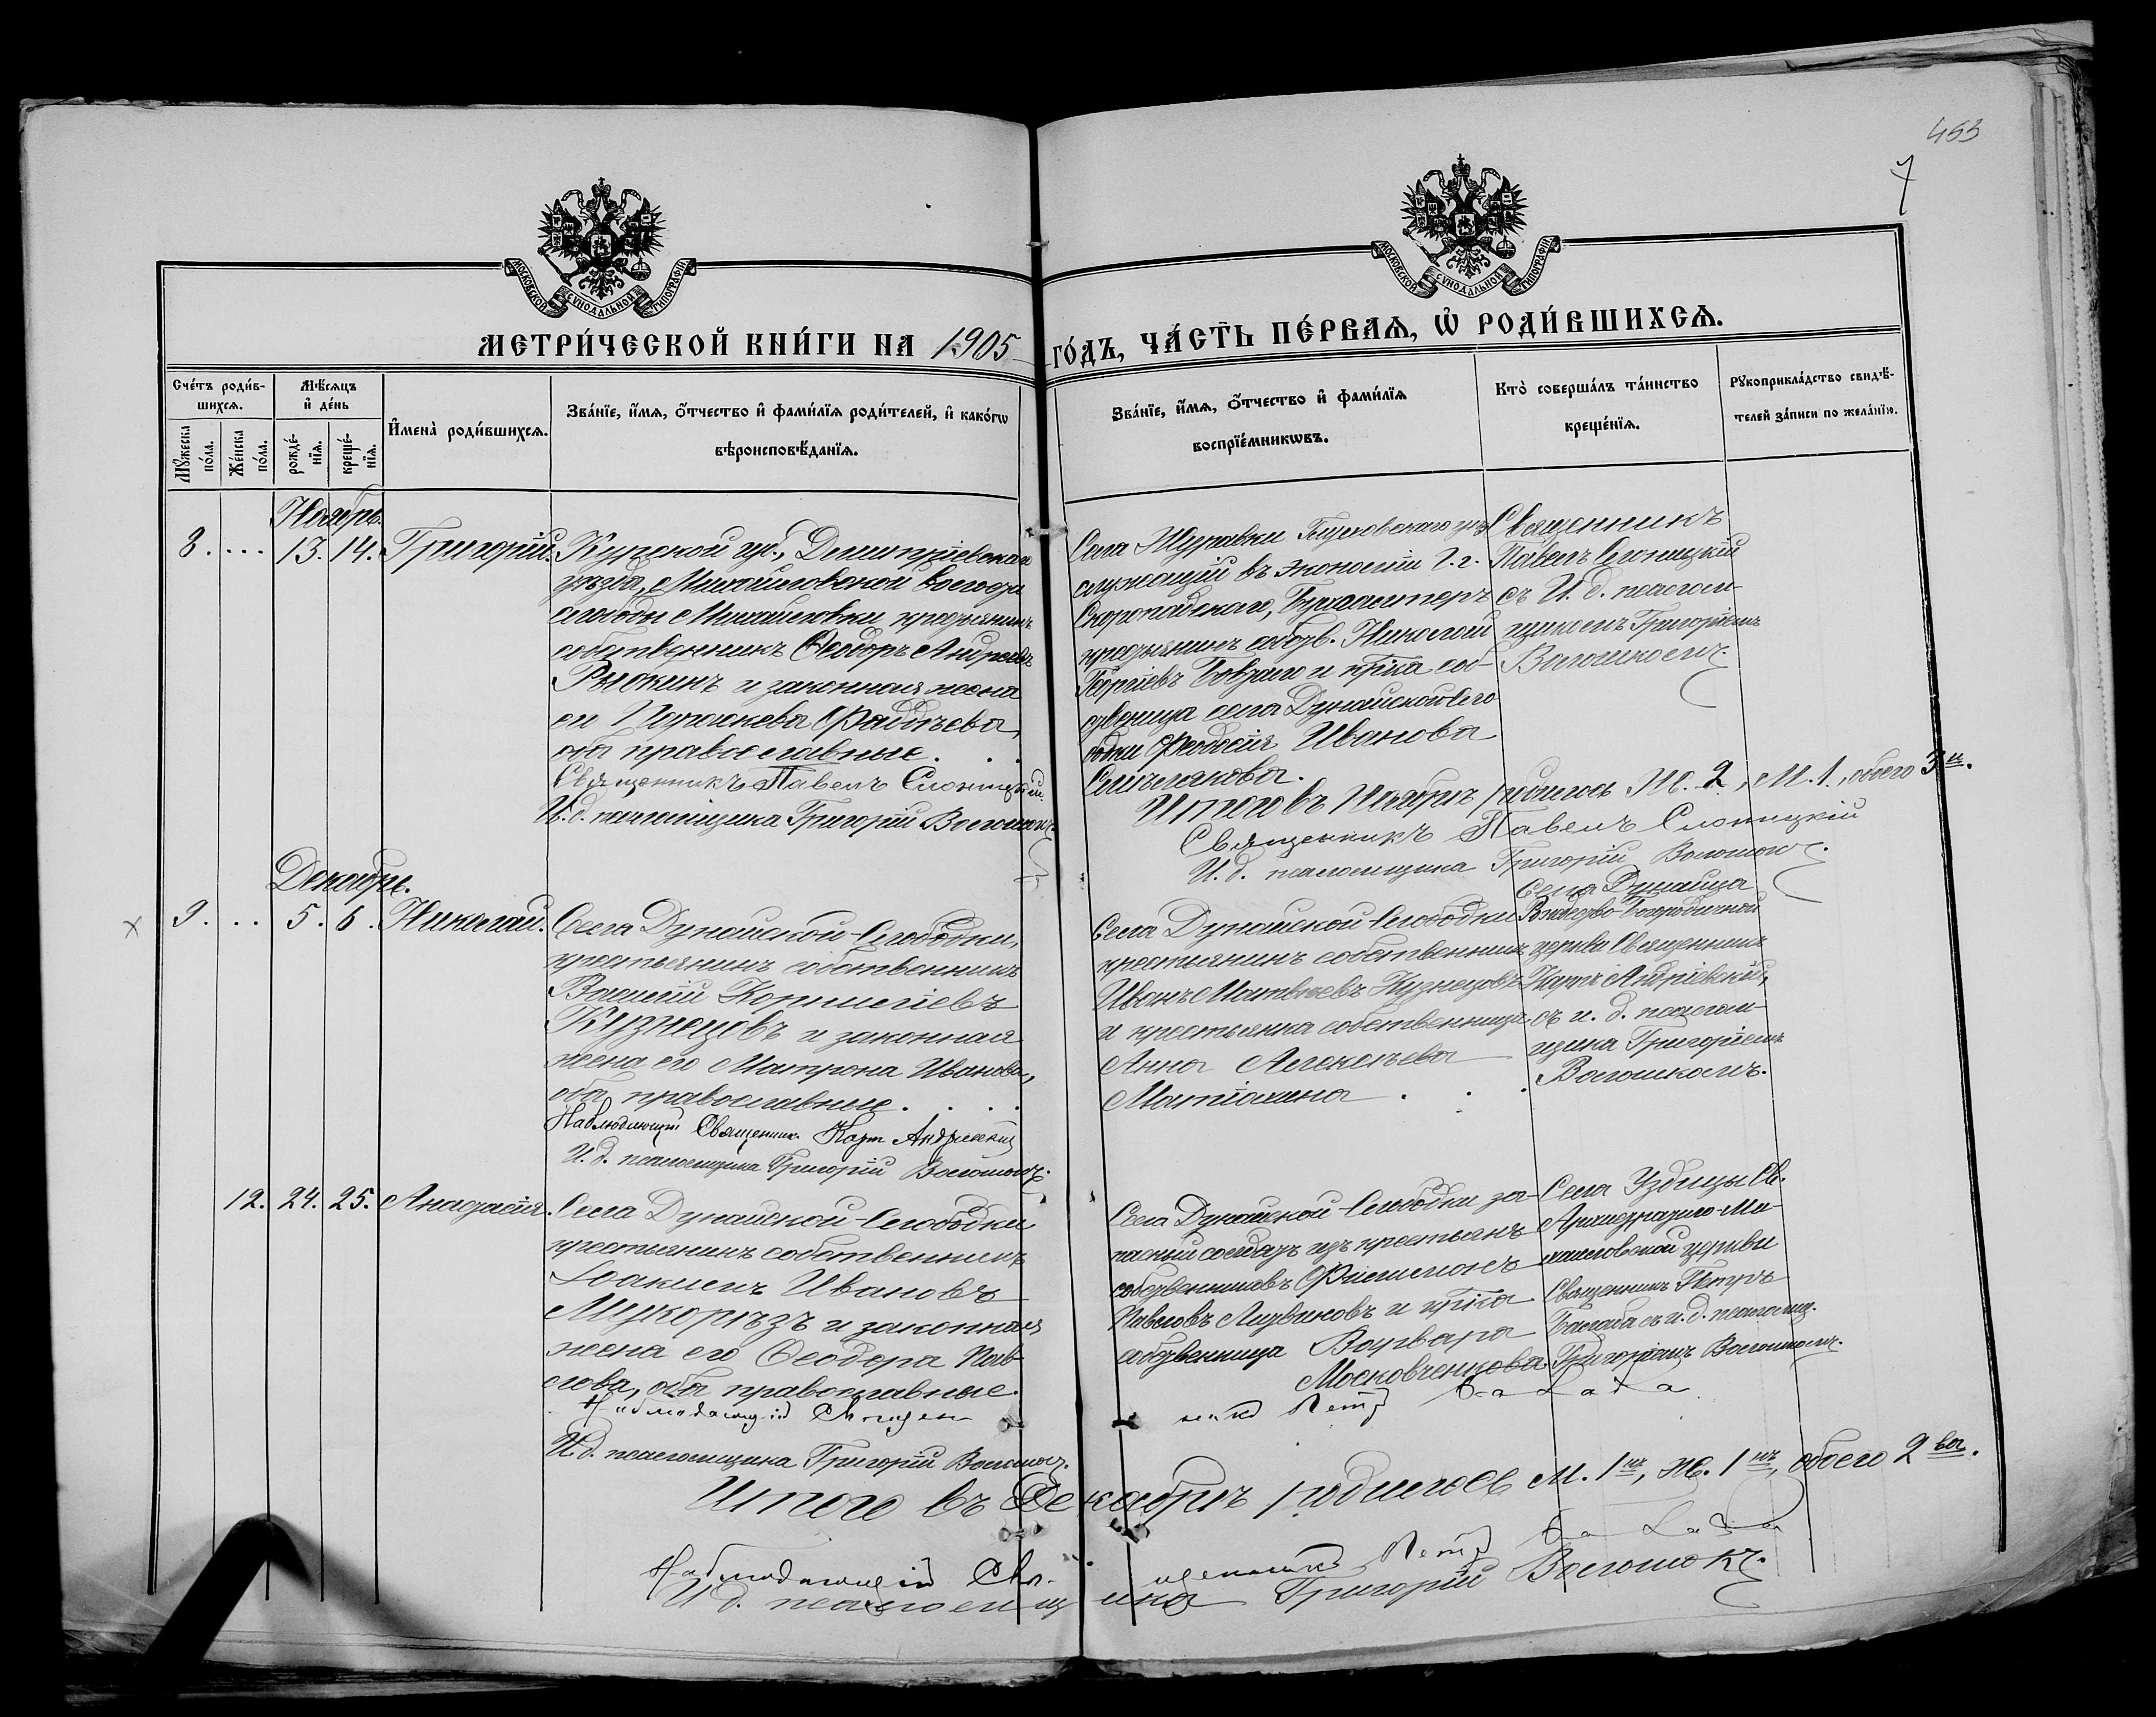 453
7
МОСКОВСКОЙ СѴНОДАЛЬНОЙ ТИПОГРАФІИ
МОСКОВСКОЙ СѴНОДАЛЬНОЙ ТИПОГРАФІИ
МЕТРИ́ЧЕСКОЙ КНИ́ГИ НА 1905 ГО́ДЪ, ЧА́СТЬ ПЕ́РВАѦ, Ѽ РОДИ́ВШИХСѦ.
Сче́тъ роди́в-
шихсѧ.
Мꙋ́жеска по́ла.
Же́нска по́ла.
Мѣ́сѧцъ
и҆ де́нь
рожде́-
нїѧ.
креще́-
нїѧ.
И҆мена̀ роди́вшихсѧ.
Зва́нїе, и҆́мѧ, о҆́тчество и҆ фами́лїѧ роди́телей, и҆ како́гѡ
вѣроисповѣ́данїѧ.
Зва́нїе, и҆́мѧ, о҆́тчество и҆ фами́лїѧ
воспрїе́мникѡвъ.
Кто̀ соверша́лъ та́инство
креще́нїѧ.
Рꙋкоприкла́дство свидѣ́-
телей за́писи по жела́нїю.
Ноябрь.
8. ... 13. 14. Григорій.
Курской губ., Димитріевскаго
уѣзда, Михайловской волости
слободы Михайловки крестьянинъ
собственникъ Ѳеодоръ Андреевъ
Рыжкинъ и законная жена
его Параскева Фаддѣева,
оба православные. . .
Священникъ Павелъ Слоницкій
И. д. псаломщика Григорій Волошокъ.
Села Журавки Глуховскаго уѣз.
служащій въ экономіи Г. г.
Скоропадскаго, Бухгалтеръ
крестьянинъ собств. Николай
Георгіевъ и кр-ка соб-
ственница села Дунайской Сло-
бодки Феодосія Иванова
Емельянова.
Священникъ
Павелъ Слоницкій
съ И. д. псалом-
щикомъ Григоріемъ
Волошкомъ.
Итого въ Ноябрѣ родилось Ж. 2, М. 1, обоего 3е.
Священникъ Павелъ Слоницкій
И. д. псаломщика Григорій Волошокъ.
Декабрь.
х 9. .. 5. 6. Николай.
Села Дунайской-Слободки,
крестьянинъ собственникъ
Василій Корниліевъ
Кузнецовъ и законная
жена его Матрона Иванова,
оба православные. . . .
Наблюдающій Священникъ Карпъ Андріевскій
И. д. псаломщика Григорій Волошокъ.
Села Дунайской-Слободки
крестьянинъ собственникъ
Иванъ Матвѣевъ Кузнецовъ
и крестьянка собственница
Анна Алексѣева
Матіахина . . .
Села Дунайца
Рождество-Богородичной
церкви Священникъ
Карпъ Андріевскій,
съ и. д. псалом-
щика Григоріемъ
Волошкомъ.
12. 24. 25. Анастасія.
Села Дунайской-Слободки
крестьянинъ собственникъ
Іоакимъ Ивановъ
Мукорѣзъ и законная
жена его Ѳеодора Пав-
лова, оба православные.
Наблюдающій Священникъ Петръ Балаба
И. д. псаломщика Григорій Волошокъ.
Села Дунайской-Слободки за-
пасный солдатъ изъ крестьянъ
собственниковъ Филимонъ
Павловъ Литвиновъ и кр-ка
собственница Варвара
Московченкова.
Села Уздицы Св.
Архистратиго-Ми-
хаиловской церкви
Священникъ Петръ
Балаба съ и. д. псаломщ.
Григоріемъ Волошкомъ.
Итого въ Декабрѣ родилось М. 1нъ, Ж. 1на, обоего 2ва.
Наблюдающій Священникъ Петръ Балаба
И. д. псаломщика Григорій Волошокъ.